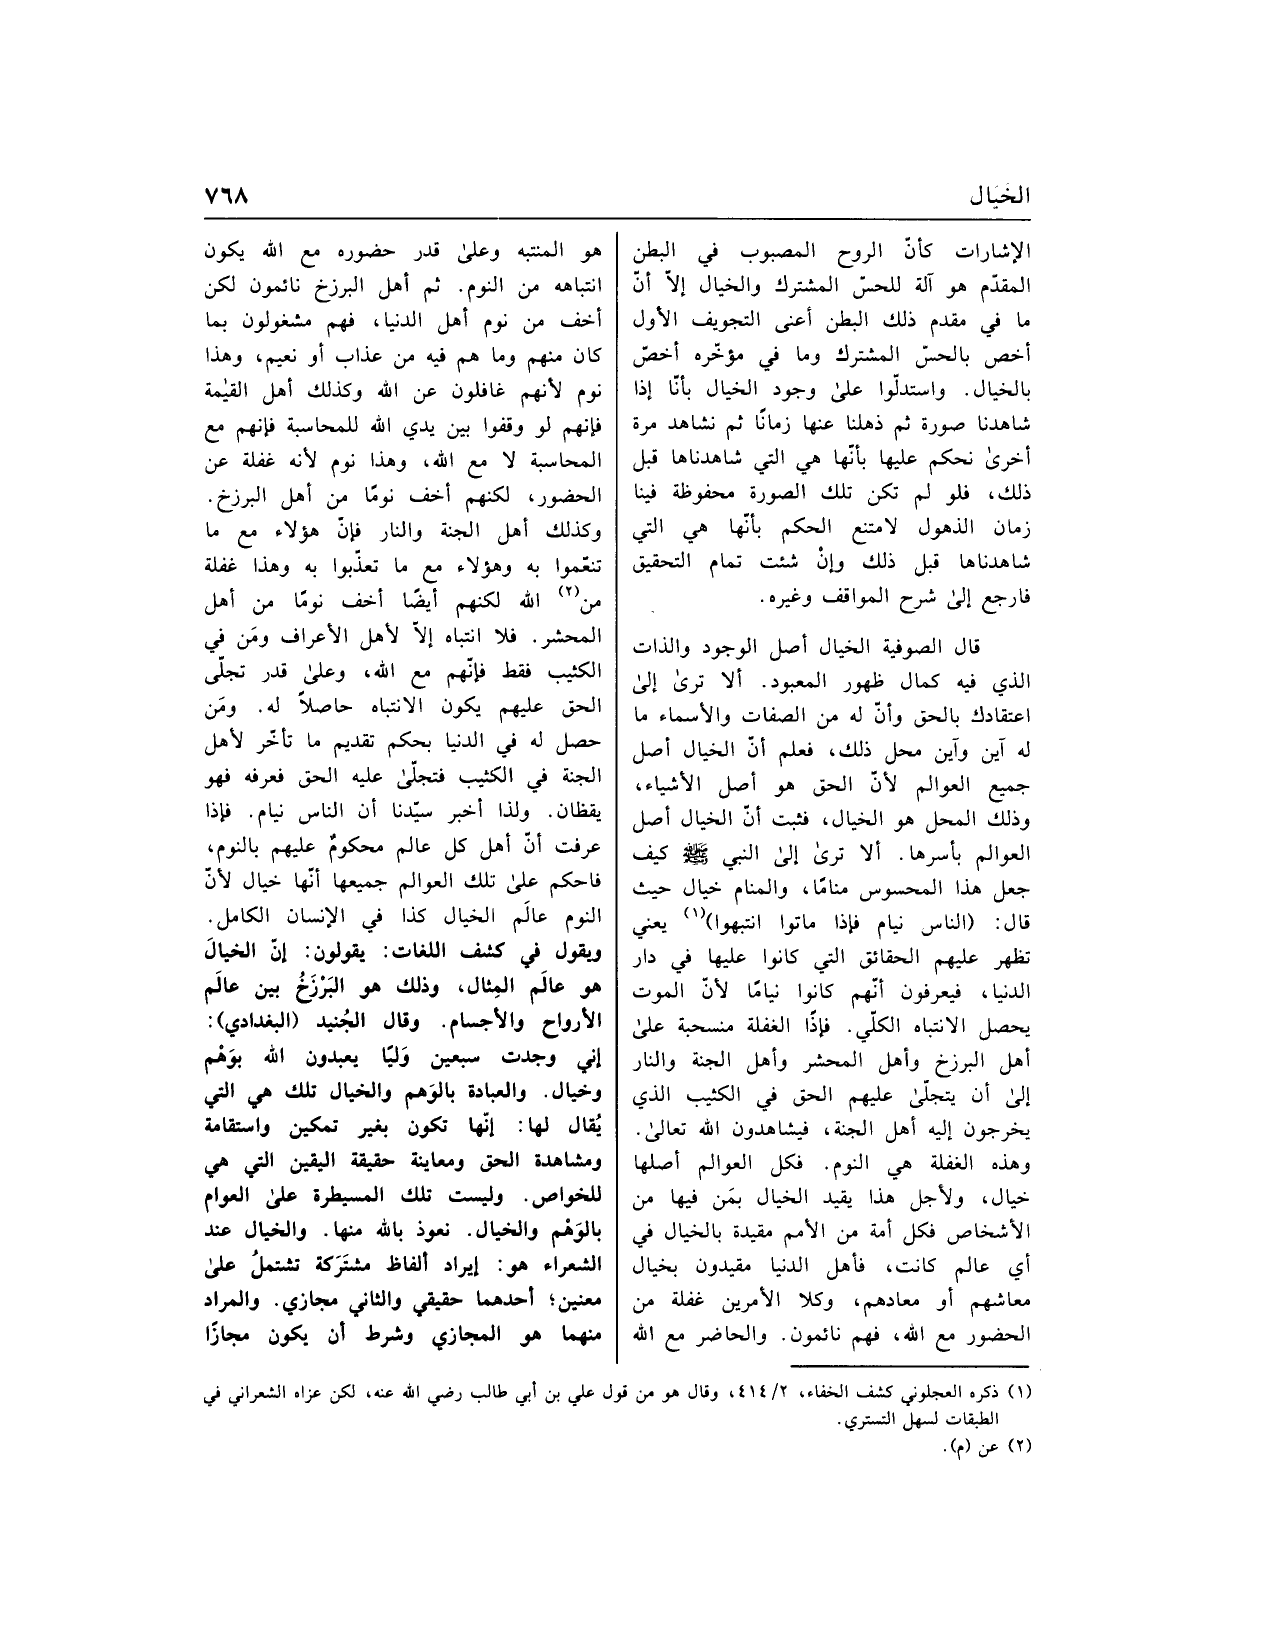 الخَيَال
٧٦٨
الإشارات كأنّ الروح المصبوب في البطن
المقدّم هو آلة للحسّ المشترك والخيال إلاّ أنّ
ما في مقدم ذلك البطن أعنى التجويف الأول
أخص بالحسّ المشترك وما في مؤخّره أخصّ
بالخيال. واستدلّوا علىٰ وجود الخيال بأنّا إذا
شاهدنا صورة ثم ذهلنا عنها زمانًا ثم نشاهد مرة
أخرىٰ نحكم عليها بأنّها هي التي شاهدناها قبل
ذلك، فلو لم تكن تلك الصورة محفوظة فينا
زمان الذهول لامتنع الحكم بأنّها هي التي
شاهدناها قبل ذلك وإنْ شئت تمام التحقيق
فارجع إلىٰ شرح المواقف وغيره.
قال الصوفية الخيال أصل الوجود والذات
الذي فيه كمال ظهور المعبود. ألا ترىٰ إلىٰ
اعتقادك بالحق وأنّ له من الصفات والأسماء ما
له آين وآين محل ذلك، فعلم أنّ الخيال أصل
جميع العوالم لأنّ الحق هو أصل الأشياء،
وذلك المحل هو الخيال، فثبت أنّ الخيال أصل
العوالم بأسرها. ألا ترىٰ إلىٰ النبي ﷺ كيف
جعل هذا المحسوس منامًا، والمنام خيال حيث
قال: (الناس نيام فإذا ماتوا انتبهوا)(١) يعني
تظهر عليهم الحقائق التي كانوا عليها في دار
الدنيا، فيعرفون أنّهم كانوا نيامًا لأنّ الموت
يحصل الانتباه الكلّي. فإذًا الغفلة منسحبة علىٰ
أهل البرزخ وأهل المحشر وأهل الجنة والنار
إلىٰ أن يتجلّىٰ عليهم الحق في الكثيب الذي
يخرجون إليه أهل الجنة، فيشاهدون الله تعالىٰ.
وهذه الغفلة هي النوم. فكل العوالم أصلها
خيال، ولأجل هذا يقيد الخيال بمَن فيها من
الأشخاص فكل أمة من الأمم مقيدة بالخيال في
أي عالم كانت، فأهل الدنيا مقيدون بخيال
معاشهم أو معادهم، وكلا الأمرين غفلة من
الحضور مع الله، فهم نائمون. والحاضر مع الله
هو المنتبه وعلىٰ قدر حضوره مع الله يكون
انتباهه من النوم. ثم أهل البرزخ نائمون لكن
أخف من نوم أهل الدنيا، فهم مشغولون بما
كان منهم وما هم فيه من عذاب أو نعيم، وهذا
نوم لأنهم غافلون عن الله وكذلك أهل القيٰمة
فإنهم لو وقفوا بين يدي الله للمحاسبة فإنهم مع
المحاسبة لا مع الله، وهذا نوم لأنه غفلة عن
الحضور، لكنهم أخف نومًا من أهل البرزخ.
وكذلك أهل الجنة والنار فإنّ هؤلاء مع ما
تنعّموا به وهؤلاء مع ما تعذّبوا به وهذا غفلة
من(٢) الله لكنهم أيضًا أخف نومًا من أهل
المحشر. فلا انتباه إلاّ لأهل الأعراف ومَن في
الكثيب فقط فإنّهم مع الله، وعلىٰ قدر تجلّي
الحق عليهم يكون الانتباه حاصلاً له. ومَن
حصل له في الدنيا بحكم تقديم ما تأخّر لأهل
الجنة في الكثيب فتجلّىٰ عليه الحق فعرفه فهو
يقظان. ولذا أخبر سيّدنا أن الناس نيام. فإذا
عرفت أنّ أهل كل عالم محكومٌ عليهم بالنوم،
فاحكم علىٰ تلك العوالم جميعها أنّها خيال لأنّ
النوم عالَم الخيال كذا في الإنسان الكامل.
ويقول في كشف اللغات: يقولون: إنّ الخيالَ
هو عالَم المِثال، وذلك هو البَرْزَخُ بين عالَم
الأرواح والأجسام. وقال الجُنيد (البغدادي):
إني وجدت سبعين وَليّا يعبدون الله بوَهْم
وخيال. والعبادة بالوَهم والخيال تلك هي التي
يُقال لها: إنّها تكون بغير تمكين واستقامة
ومشاهدة الحق ومعاينة حقيقة اليقين التي هي
للخواص. وليست تلك المسيطرة علىٰ العوام
بالوَهْم والخيال. نعوذ بالله منها. والخيال عند
الشعراء هو: إيراد ألفاظ مشتَرَكة تشتملُ علىٰ
معنين؛ أحدهما حقيقي والثاني مجازي. والمراد
منهما هو المجازي وشرط أن يكون مجازًا
(١) ذكره العجلوني كشف الخفاء، ٢/ ٤١٤، وقال هو من قول علي بن أبي طالب رضي الله عنه، لكن عزاه الشعراني في
الطبقات لسهل التستري.
(٢) عن (م).